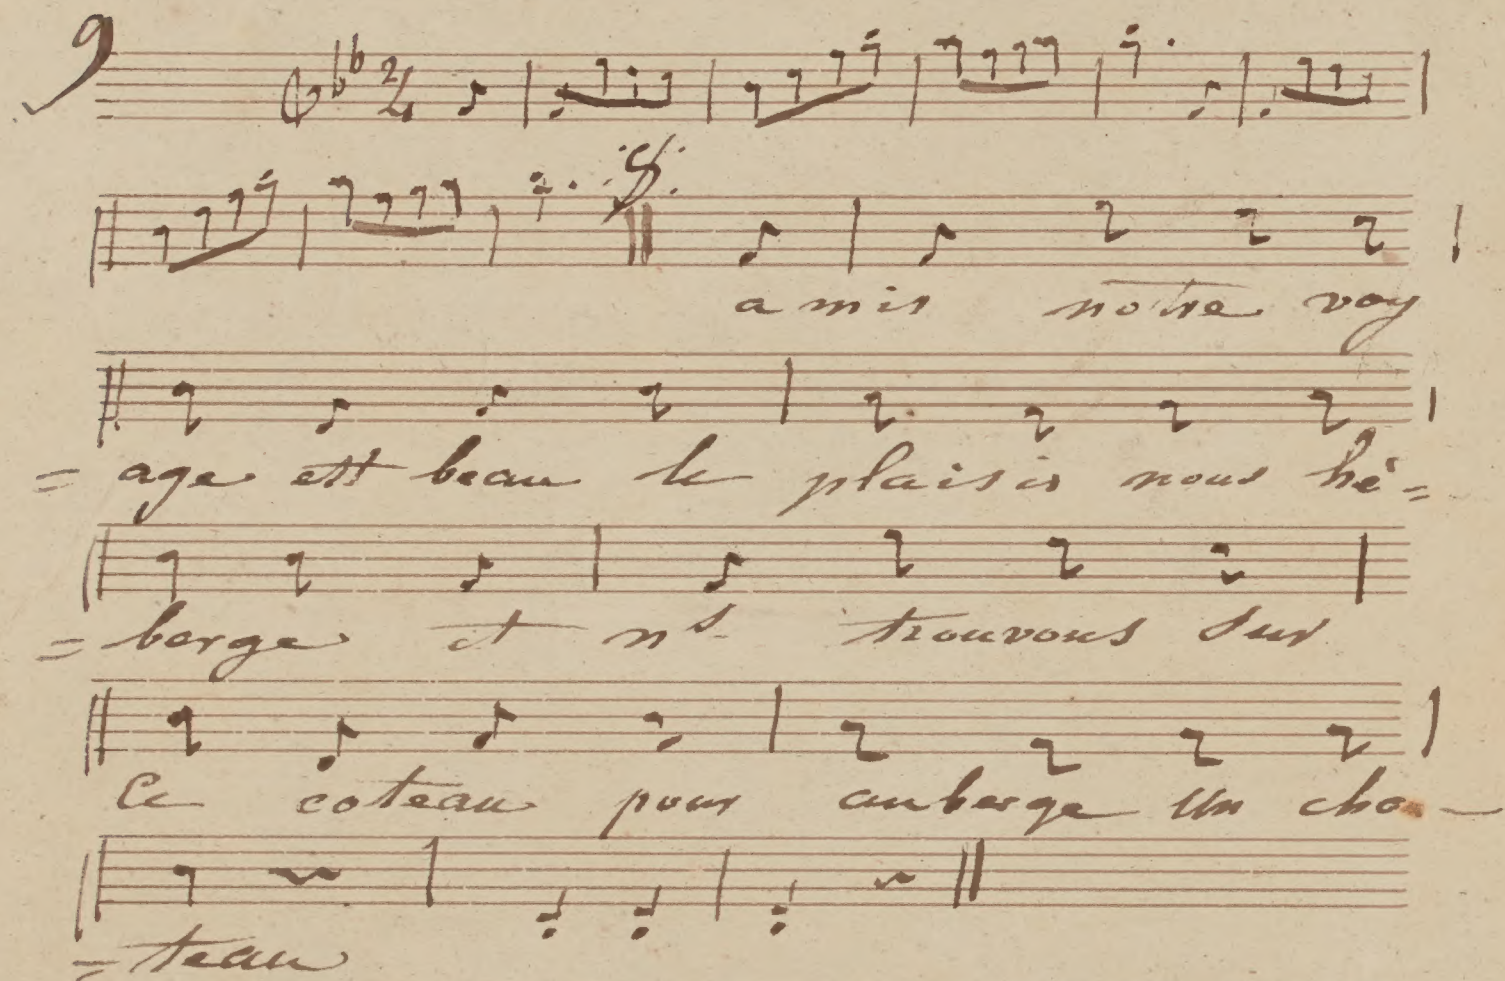 9
2/4
a mis notre voy
= age est beau le plaisir nous hé =
= berge et ns trouvons sur
Ce coteau pour auberge Un cha -
= teau